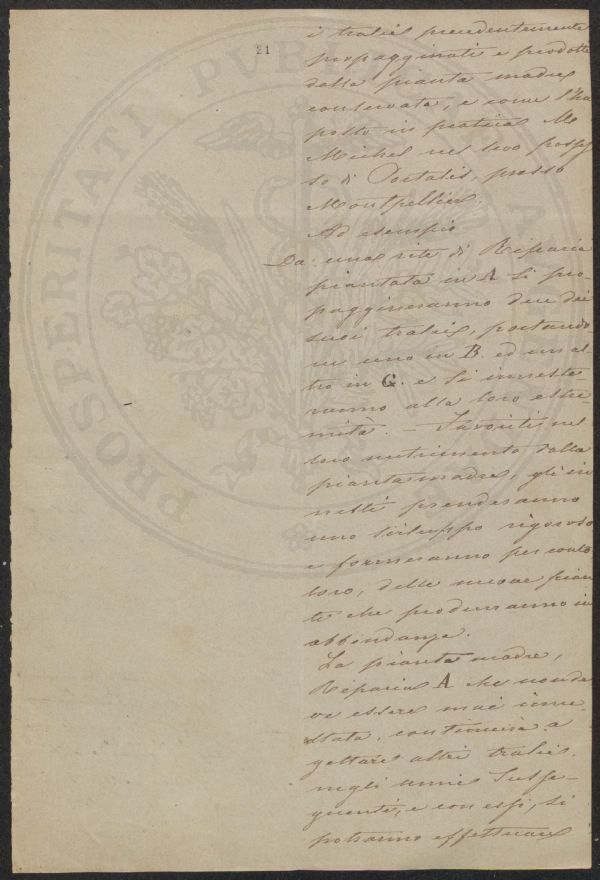 21
i tralci precedentemente
propagginati e prodotti
dalla pianta madre
conservata, e come l'ha
posto in pratica Mr
Michel nel suo posses
so di Portalis, presso
Montpellier.
Ad esempio
Da una vite di Riparia
piantata in A si pro-
pagineranno due dei
suoi tralci, portando
ne uno in B. ed un al-
tro in C. e si inneste-
ranno alla loro estre-
mità. — Favoriti nel
loro nutrimento dalla
pianta madre, gli in
nesti prenderanno
uno sviluppo vigoroso
e formeranno per conto
loro, delle nuove pian
te che produrranno in
abbondanza.
La pianta madre,
Riparia A che non de
ve essere mai inne-
stata, continuerà a
gettare altri tralci
negli anni susse-
guenti, e con essi, si
potranno effettuare
PROSPERITATI PVBL